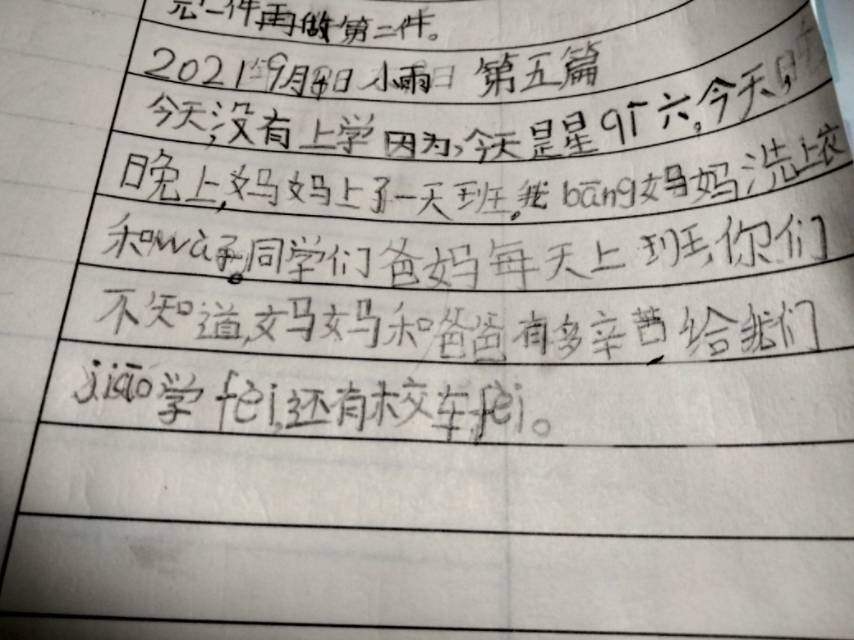 完一件再做第二件。
2021年9月4日 小雨 第五篇
今天,没有上学因为,今天是星qī六,今天,
晚上,妈妈上了一天班。我bāng妈妈洗上衣
和wà子。同学们爸妈每天上班,你们
不知道,妈妈和爸爸有多辛苦给我们
jiāo学fèi,还有校车fèi。